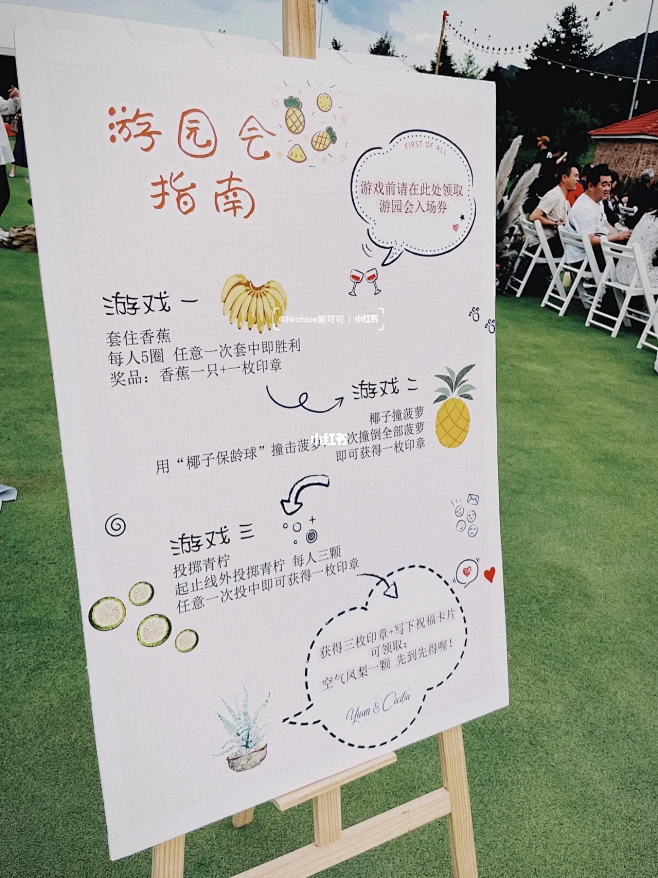 游园会
指南
FIRST OF ALL
游戏前请在此处领取
游园会入场券
游戏一
@Nichloe妮可可 | 小红书
套住香蕉
每人5圈 任意一次套中即胜利
奖品：香蕉一只+一枚印章
游戏二
椰子撞菠萝
小红书
用“椰子保龄球”撞击菠萝，次撞倒全部菠萝
即可获得一枚印章
游戏三
投掷青柠
起止线外投掷青柠 每人三颗
任意一次投中即可获得一枚印章
获得三枚印章+写下祝福卡片
可领取：
空气凤梨一颗 先到先得喔！
Yuan & Cecilia